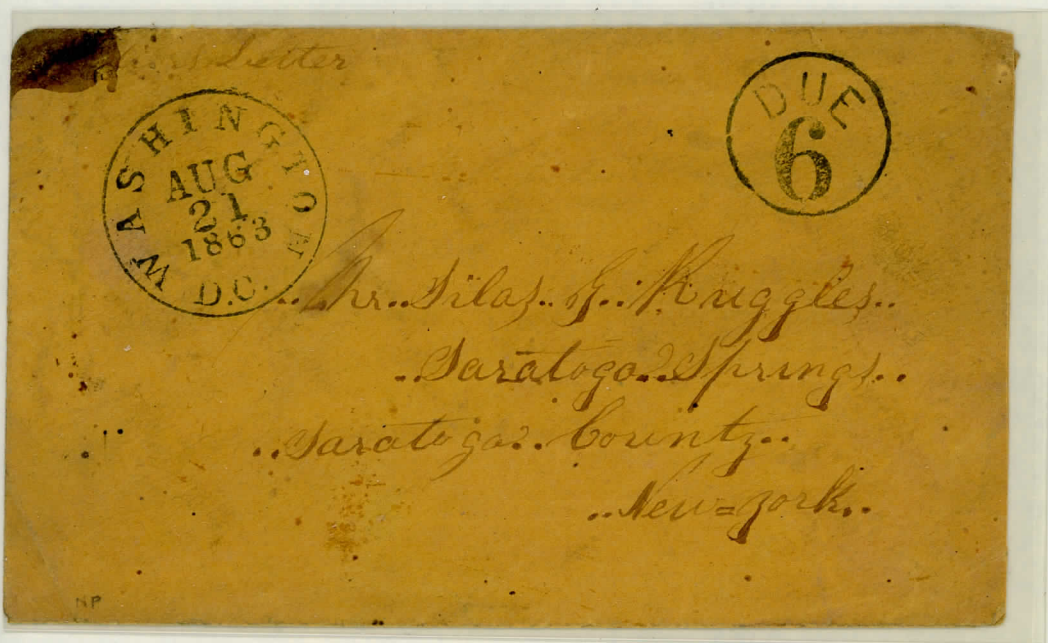 Letter
WASHINGTON
AUG
21
1863
D.C.
DUE
6
..Mr..Silas..G..Ruggles..
..Saratoga..Springs..
..Saratoga..County..
..New=York..
NP